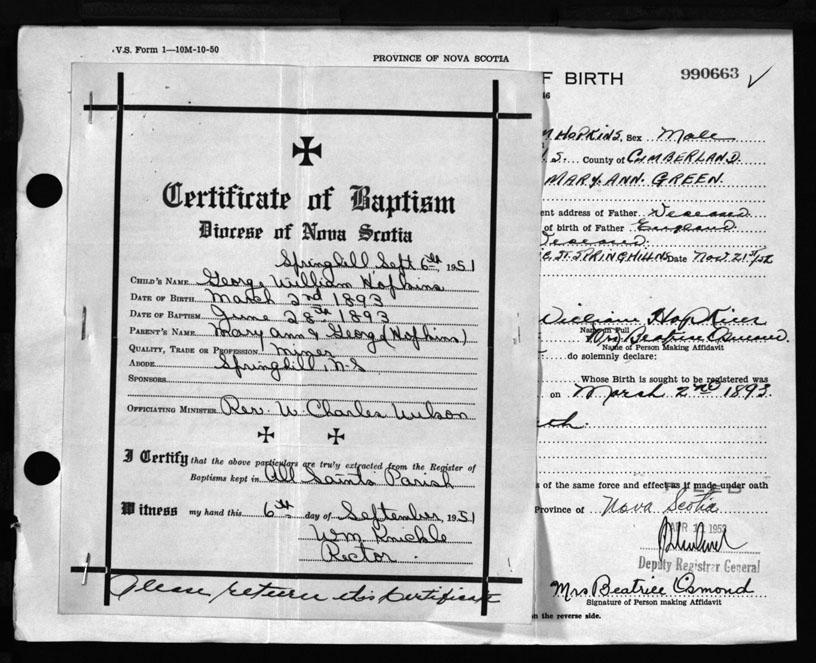 V.S. Form 1—10M-10-50
PROVINCE OF NOVA SCOTIA
F BIRTH
990663
46
Certificate of Baptism
Diocese of Nova Scotia
Springhill Sept 6th 1951
CHILD'S NAME George William Hopkins
DATE OF BIRTH March 2nd 1893
DATE OF BAPTISM June 28th 1893
PARENT'S NAME Mary Ann & Georg (Hopkins)
QUALITY, TRADE OR PROFESSION Miner
ABODE Springhill, N-S
SPONSORS
OFFICIATING MINISTER Rev. W. Charles Wilson
I Certify that the above particulars are truly extracted from the Register of
Baptisms kept in All Saints Parish
Witness my hand this 6th day of September, 1951
Wm Knickle
Rector.
Please return this Certificate
M HOPKINS. Sex Male
S. County of CUMBERLAND.
MARY. ANN. GREEN.
ent address of Father Deceased
of birth of Father England
Deceased
ST. SPRINGHILL NS Date Nov. 21st/52
William Hopkins
Name in Full
Mrs Beatrice Osmond.
Name of Person Making Affidavit
do solemnly declare:
Whose Birth is sought to be registered was
on March 2nd 1893.
th.
s of the same force and effect as if made under oath
Province of Nova Scotia
APR 1 1953
Deputy Registrar General
Mrs Beatrice Osmond
Signature of Person making Affidavit
n the reverse side.